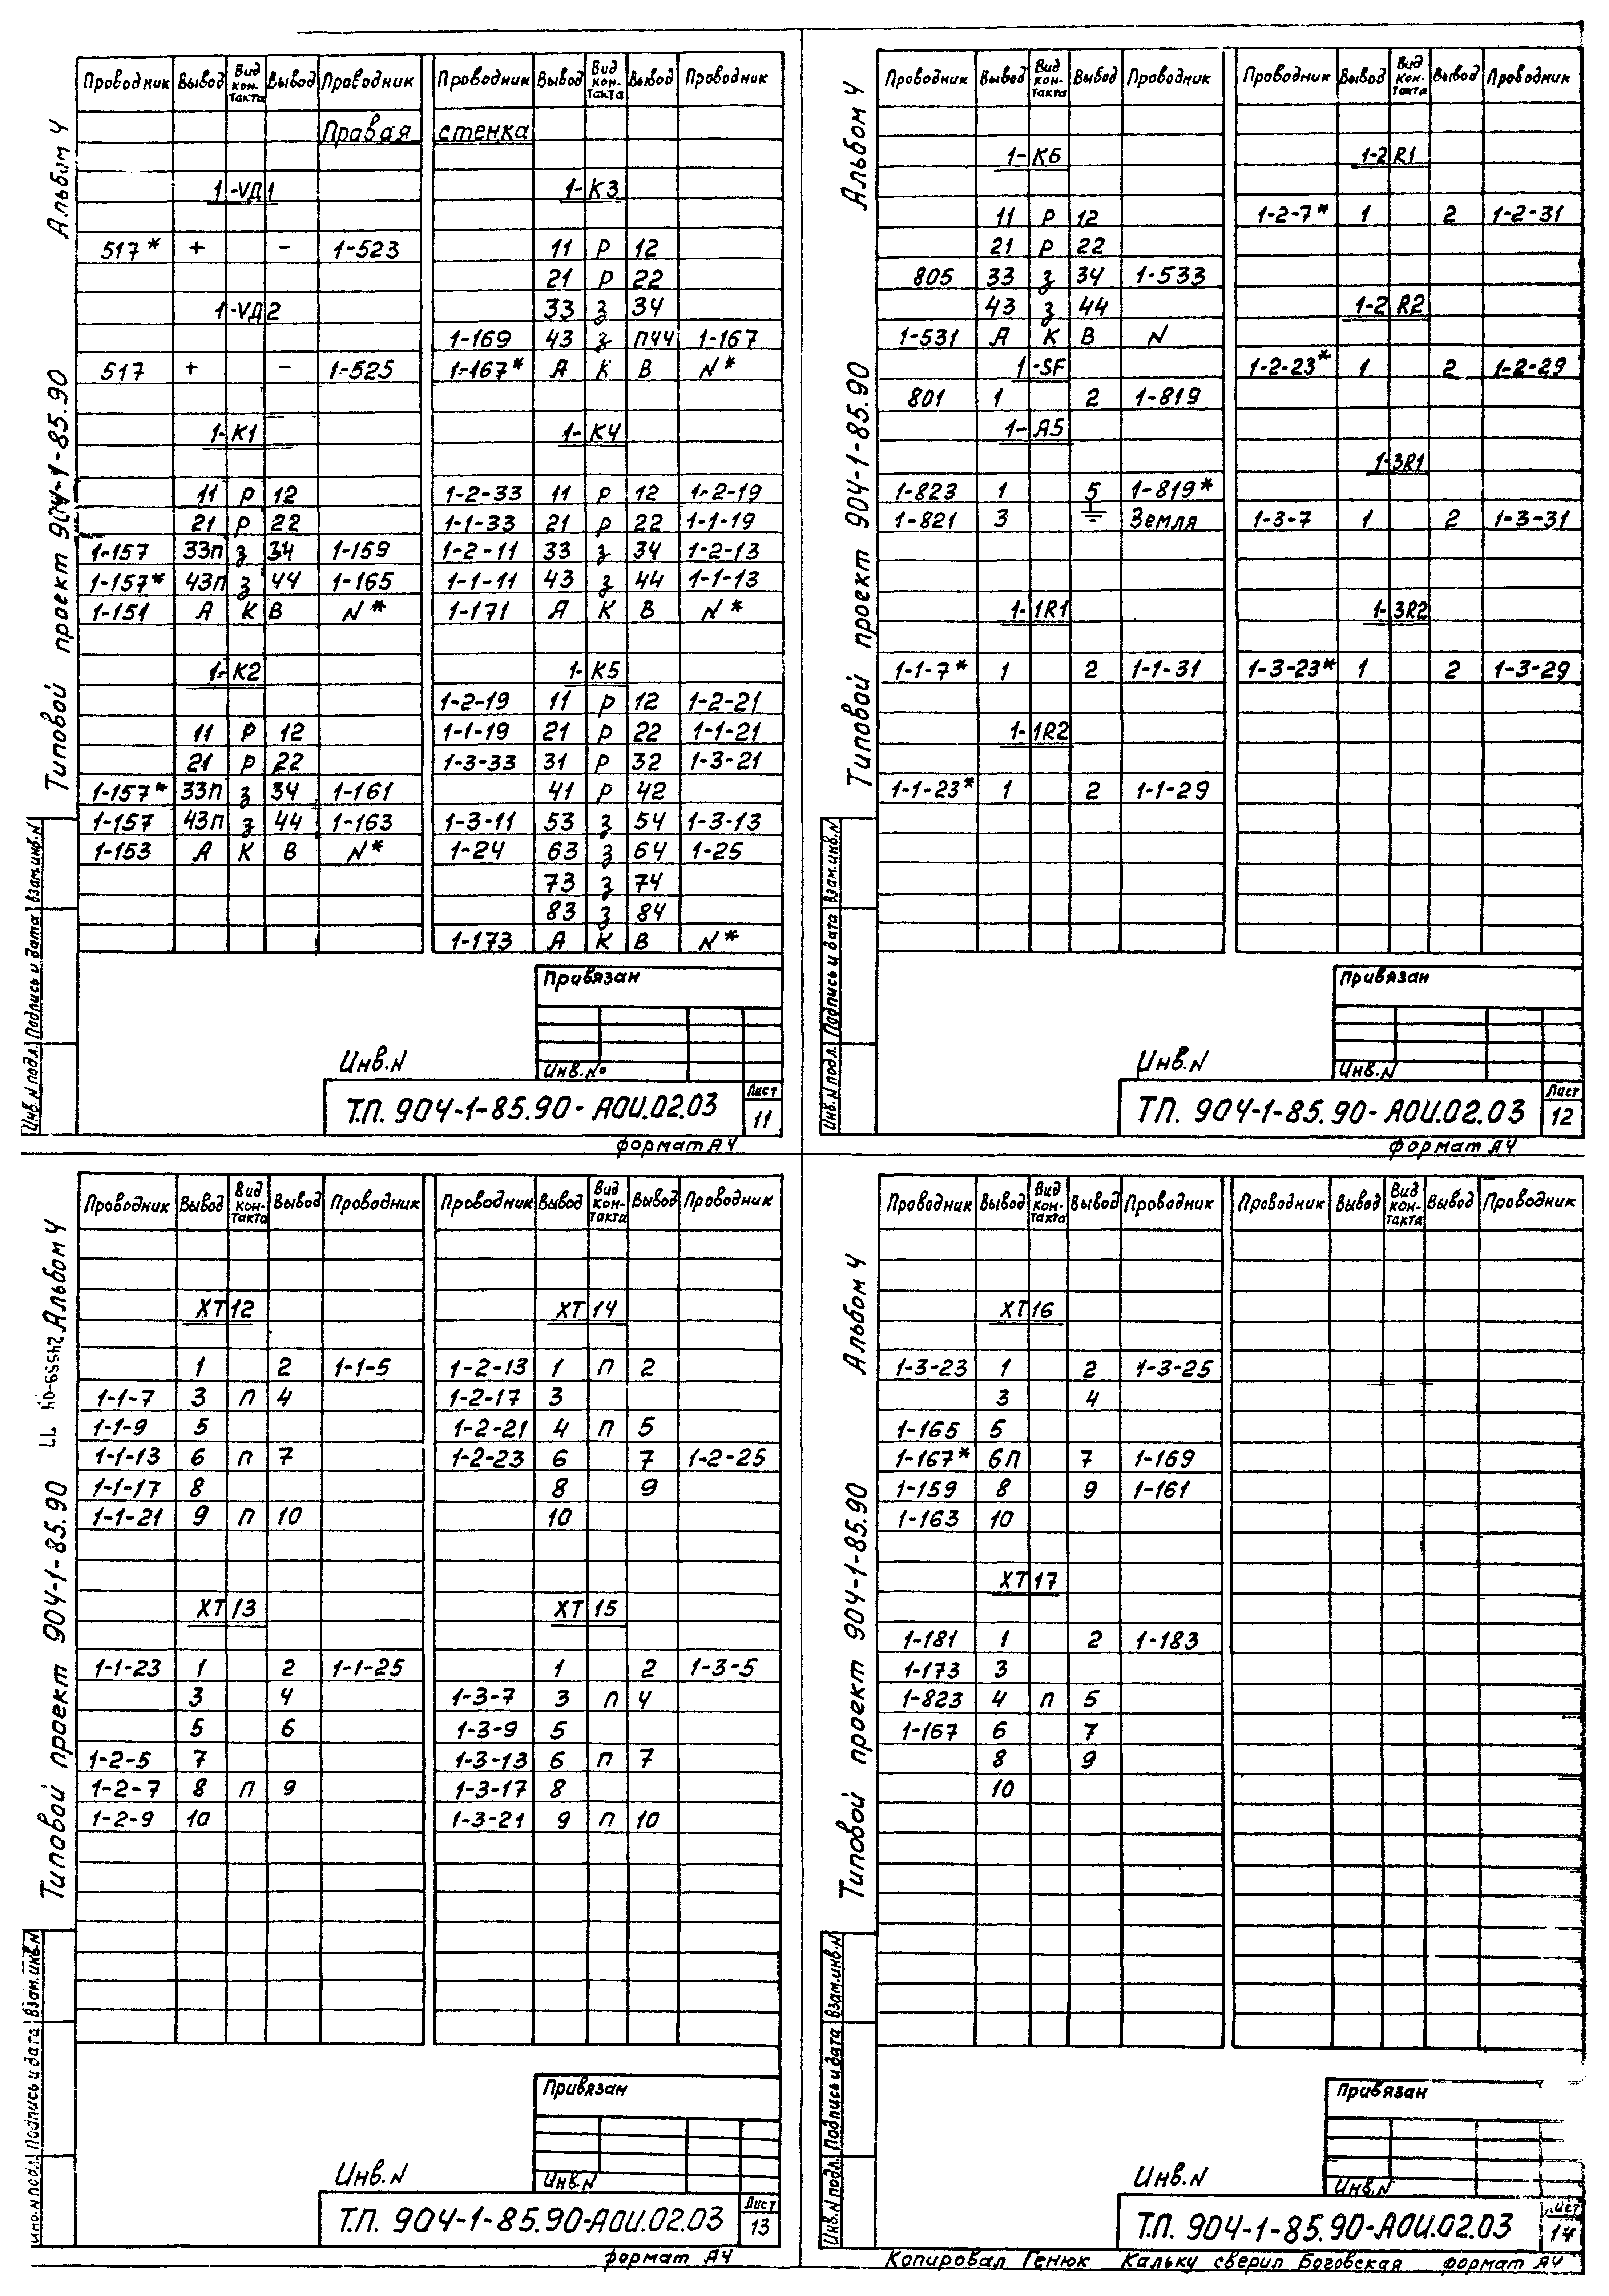 Альбом 4
Типовой проект 904-1-85.90
Проводник Вывод Вид контакта Вывод Проводник
Правая стенка
1-VД1
517* + - 1-523
1-VД2
517 + - 1-525
1-К1
11 Р 12
21 Р 22
1-157 33П з 34 1-159
1-157* 43П з 44 1-165
1-151 А К В N*
1-К2
11 Р 12
21 Р 22
1-157* 33П з 34 1-161
1-157 43П з 44 1-163
1-153 А К В N*
Проводник Вывод Вид кон-такта Вывод Проводник
1-К3
11 Р 12
21 Р 22
33 з 34
1-169 43 з П44 1-167
1-167* А К В N*
1-К4
1-2-33 11 Р 12 1-2-19
1-1-33 21 Р 22 1-1-19
1-2-11 33 з 34 1-2-13
1-1-11 43 з 44 1-1-13
1-171 А К В N*
1-К5
1-2-19 11 Р 12 1-2-21
1-1-19 21 Р 22 1-1-21
1-3-33 31 Р 32 1-3-21
41 Р 42
1-3-11 53 з 54 1-3-13
1-24 63 з 64 1-25
73 з 74
83 з 84
1-173 А К В N*
Инв.N подл. Подпись и дата Взам.инв.N
Привязан
Инв.N
Инв.№
Т.П. 904-1-85.90-АОИ.02.03
Лист
11
формат А4
Альбом 4
Типовой проект 904-1-85.90
Проводник Вывод Вид кон-такта Вывод Проводник
1-К6
11 Р 12
21 Р 22
805 33 з 34 1-533
43 з 44
1-531 А К В N
1-SF
801 1 2 1-819
1-А5
1-823 1 5 1-819*
1-821 3 ⏚ Земля
1-1R1
1-1-7* 1 2 1-1-31
1-1R2
1-1-23* 1 2 1-1-29
Проводник Вывод Вид кон-такта Вывод Проводник
1-2R1
1-2-7* 1 2 1-2-31
1-2R2
1-2-23* 1 2 1-2-29
1-3R1
1-3-7 1 2 1-3-31
1-3R2
1-3-23* 1 2 1-3-29
Инв.N подл. Подпись и дата Взам.инв.N
Привязан
Инв.N
Инв.N
ТП. 904-1-85.90-АОИ.02.03
Лист
12
формат А4
Альбом 4
Типовой проект 904-1-85.90
Проводник Вывод Вид кон-такта Вывод Проводник
ХТ12
1 2 1-1-5
1-1-7 3 П 4
1-1-9 5
1-1-13 6 П 7
1-1-17 8
1-1-21 9 П 10
ХТ13
1-1-23 1 2 1-1-25
3 4
5 6
1-2-5 7
1-2-7 8 П 9
1-2-9 10
Проводник Вывод Вид кон-такта Вывод Проводник
ХТ14
1-2-13 1 П 2
1-2-17 3
1-2-21 4 П 5
1-2-23 6 7 1-2-25
8 9
10
ХТ15
1 2 1-3-5
1-3-7 3 П 4
1-3-9 5
1-3-13 6 П 7
1-3-17 8
1-3-21 9 П 10
Инв.N подл. Подпись и дата Взам.инв.N
Привязан
Инв.N
Инв.N
Т.П. 904-1-85.90-АОИ.02.03
Лист
13
формат А4
Альбом 4
Типовой проект 904-1-85.90
Проводник Вывод Вид кон-такта Вывод Проводник
ХТ16
1-3-23 1 2 1-3-25
3 4
1-165 5
1-167* 6П 7 1-169
1-159 8 9 1-161
1-163 10
ХТ17
1-181 1 2 1-183
1-173 3
1-823 4 П 5
1-167 6 7
8 9
10
Проводник Вывод Вид кон-такта Вывод Проводник
Инв.N подл. Подпись и дата Взам.инв.N
Привязан
Инв.N
Инв.N
Т.П. 904-1-85.90-АОИ.02.03
Лист
14
Копировал Генюк Кальку сверил Боговская формат А4